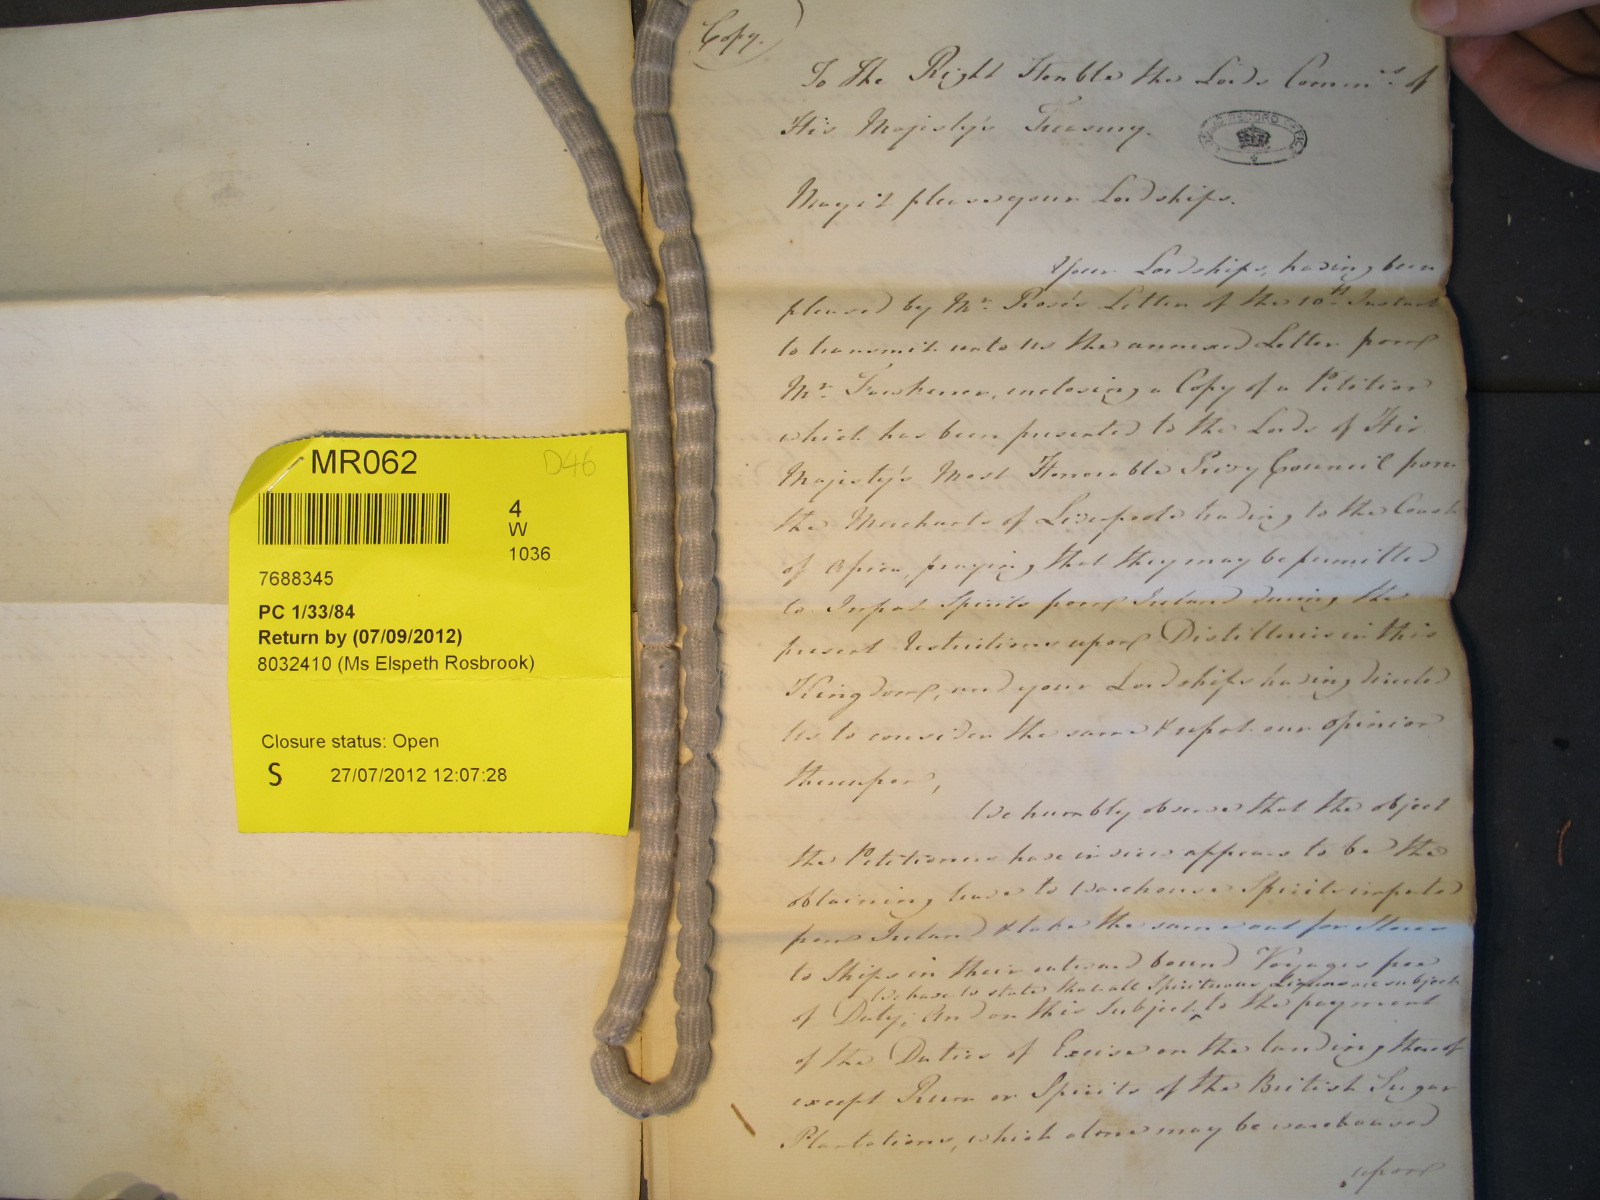 MR062
D46
4
W
1036
7688345
PC 1/33/84
Return by (07/09/2012)
8032410 (Ms Elspeth Rosbrook)
Closure status: Open
S 27/07/2012 12:07:28
Copy.
To the Right Honble the Lords Commrs. of
His Majesty's Treasury.
RECORD OFFICE
May it please your Lordships.
Your Lordships, having been
pleased by Mr. Rose's Letter of the 10th Instant
to transmit unto us the annexed Letter from
Mr. Fawkener, inclosing a Copy of a Petition
which has been presented to the Lords of His
Majesty's Most Honorable Privy Council from
the Merchants of Liverpoole trading to the Coast
of Africa, praying that they may be permitted
to Import Spirits from Ireland during the
present Restrictions upon Distilleries in this
Kingdom, and your Lordships having directed
Us to consider the same & report our opinion
thereupon,
We humbly observe that the object
the Petitioners have in view appears to be the
obtaining leave to Warehouse Spirits imported
from Ireland & take the same out for Stores
to Ships in their outward bound Voyages free
We have to state that all Spirituous Liquors are subject
of Duty; And on this subject ‸ to the payment
of the Duties of Excise on the landing thereof
except Rum or Spirits of the British Sugar
Plantations, which alone may be warehoused
upon